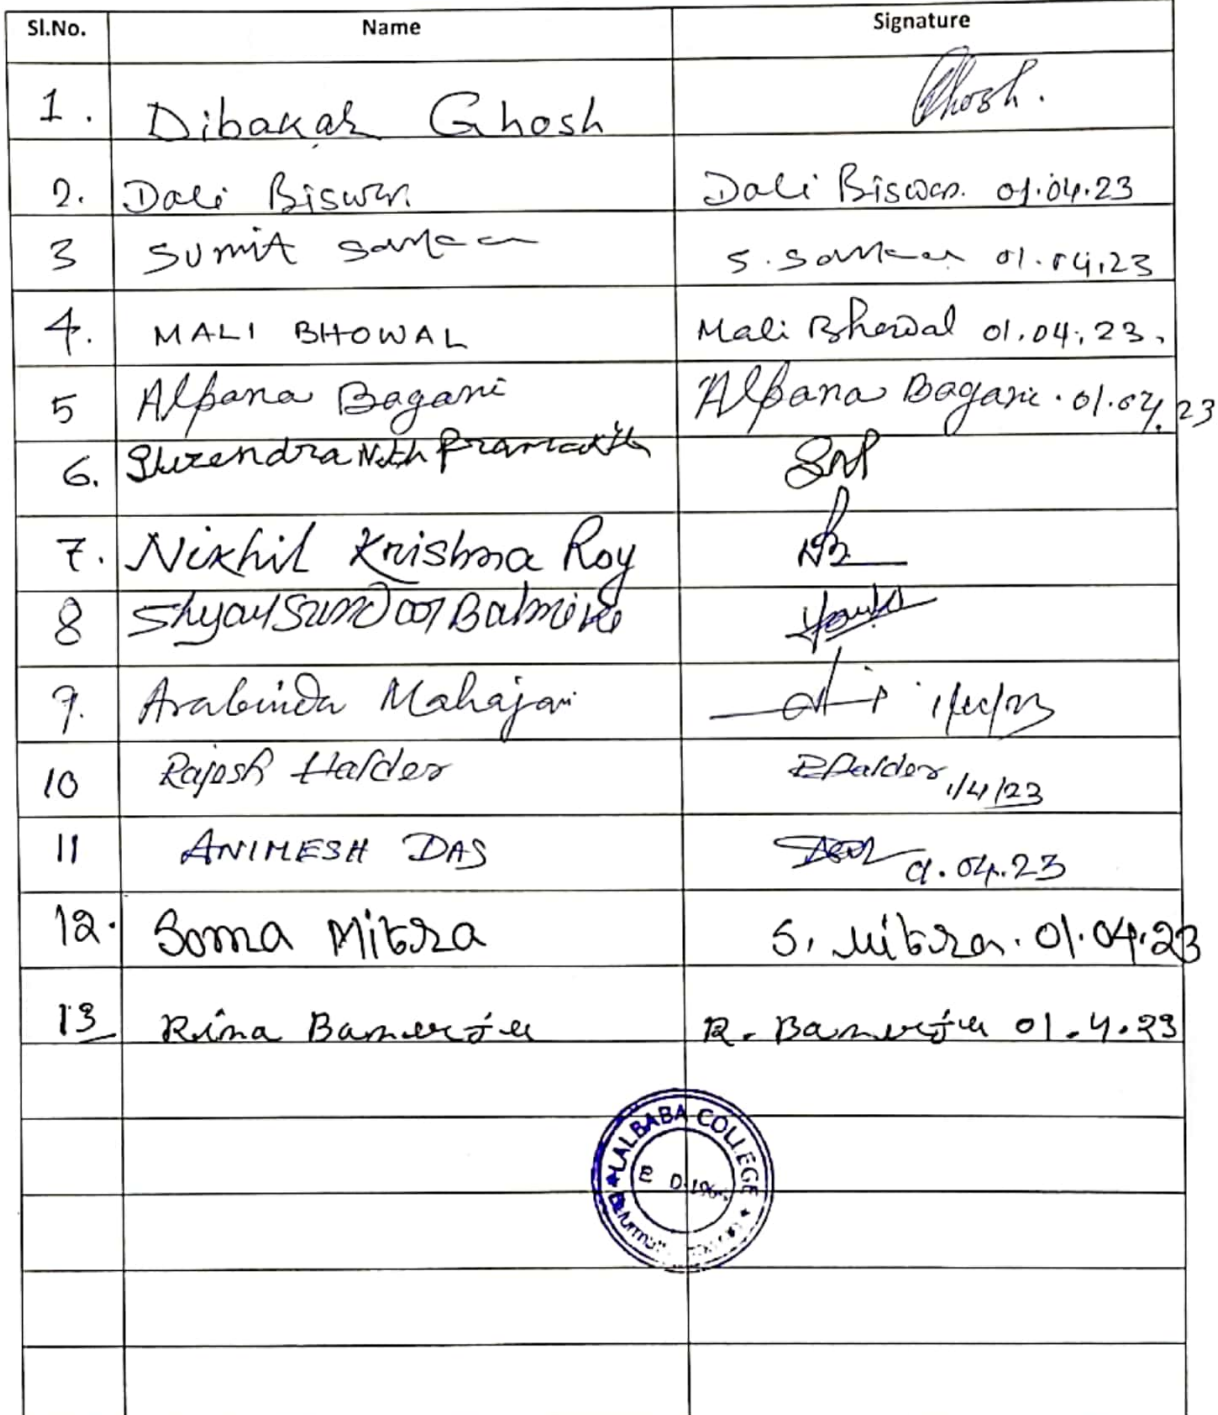 Sl.No. Name Signature
1. Dibakar Ghosh Ghosh.
2. Dali Biswas Dali Biswas. 01.04.23
3 Sumit Sarkar S. Sarkar 01.04.23
4. MALI BHOWAL Mali Bhowal 01.04.23.
5 Alpana Bagani Alpana Bagani. 01.04.23
6. Nath SNP
7. Nikhil Krishna Roy
8 Balmiki
9. Arabinda Mahajan
10 Rajesh Halder R Halder 1/4/23
11 ANIMESH DAS Das 01.04.23
12. Soma Mitra S. Mitra. 01.04.23
13 Rina Banerjee R. Banerjee 01.4.23
LALBABA COLLEGE